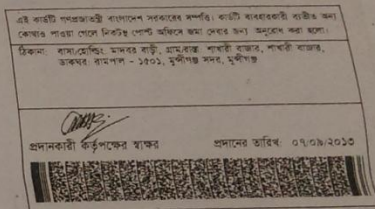 এই কার্ডটি গণপ্রজাতন্ত্রী বাংলাদেশ সরকারের সম্পত্তি। কার্ডটি ব্যবহারকারী ব্যতীত অন্য
কোথাও পাওয়া গেলে নিকটস্থ পোস্ট অফিসে জমা দেবার জন্য অনুরোধ করা হলো।
ঠিকানা: বাসা/হোল্ডিং: মাদবর বাড়ী, গ্রাম/রাস্তা: শাখারী বাজার, শাখারী বাজার,
ডাকঘর: রামপাল - ১৫০১, মুন্সীগঞ্জ সদর, মুন্সীগঞ্জ
প্রদানকারী কর্তৃপক্ষের স্বাক্ষর প্রদানের তারিখ: ০৭/০৯/২০১৩